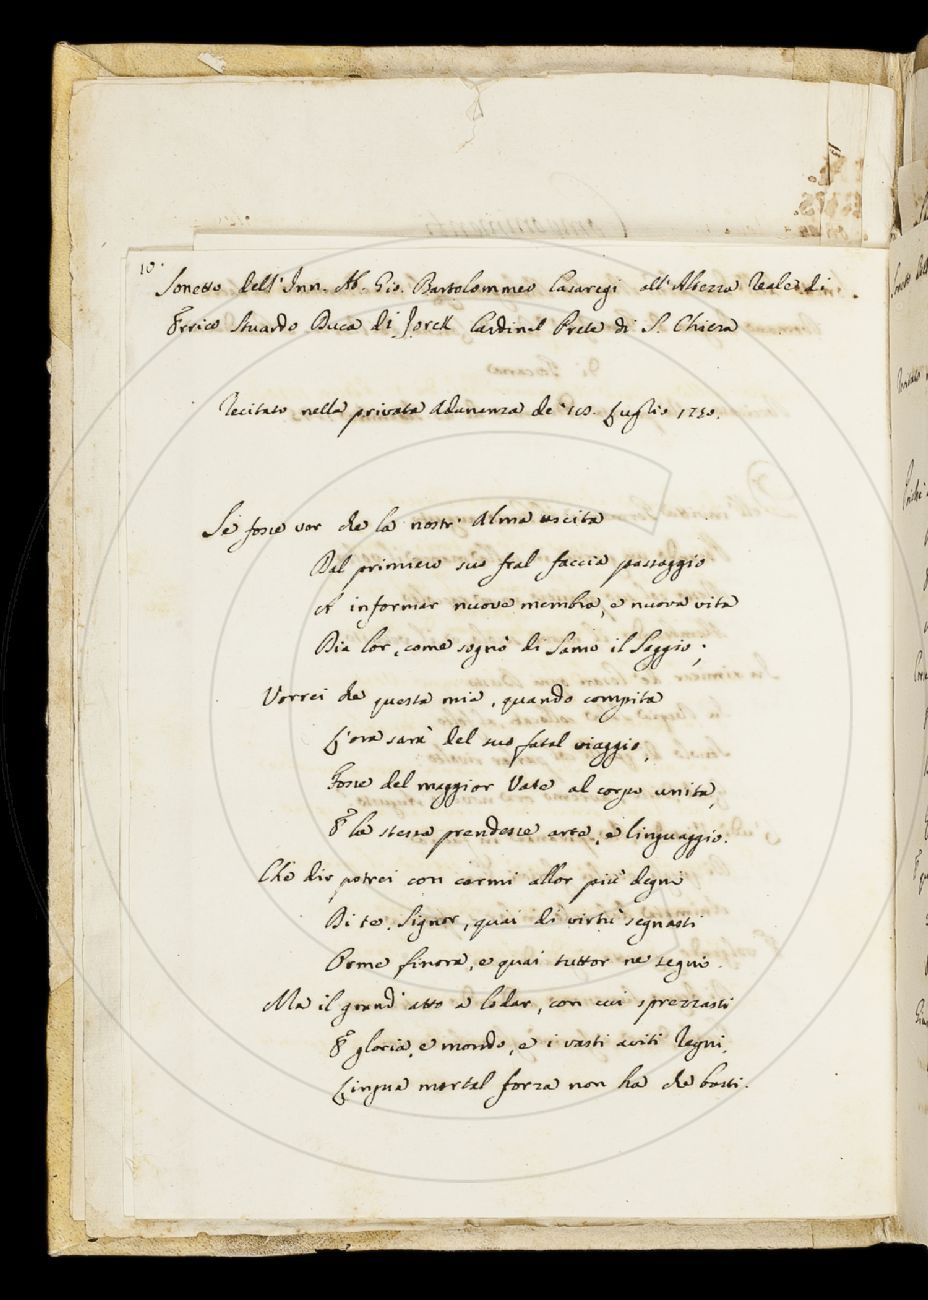 10.
Sonetto dell' Inn. Ab. Gio. Bartolommeo Casaregi all' Altezza Reale di
Errico Stuardo Duca di Jorck Cardinal Prete di S. Chiesa
Recitato nella privata Adunanza de' 10. Luglio 1750.
Se fosse ver che la nostr' Alma uscita
Dal primiero suo fral faccia passaggio
A informar nuove membra, e nuova vita
Dia lor, come sognò di Samo il Saggio;
Vorrei che questa mia, quando compita
L'ora sarà del suo fatal viaggio,
Fosse del maggior Vate al corpo unita,
E la stessa prendesse arte, e linguaggio.
Chè dir potrei con carmi allor più degni
Di te, Signor, quai di virtù segnasti
Orme finora, e quai tuttor ne segni.
Ma il grand' atto a lodar, con cui sprezzasti
E gloria, e mondo, e i vasti aviti Regni,
Lingua mortal forza non ha che basti.